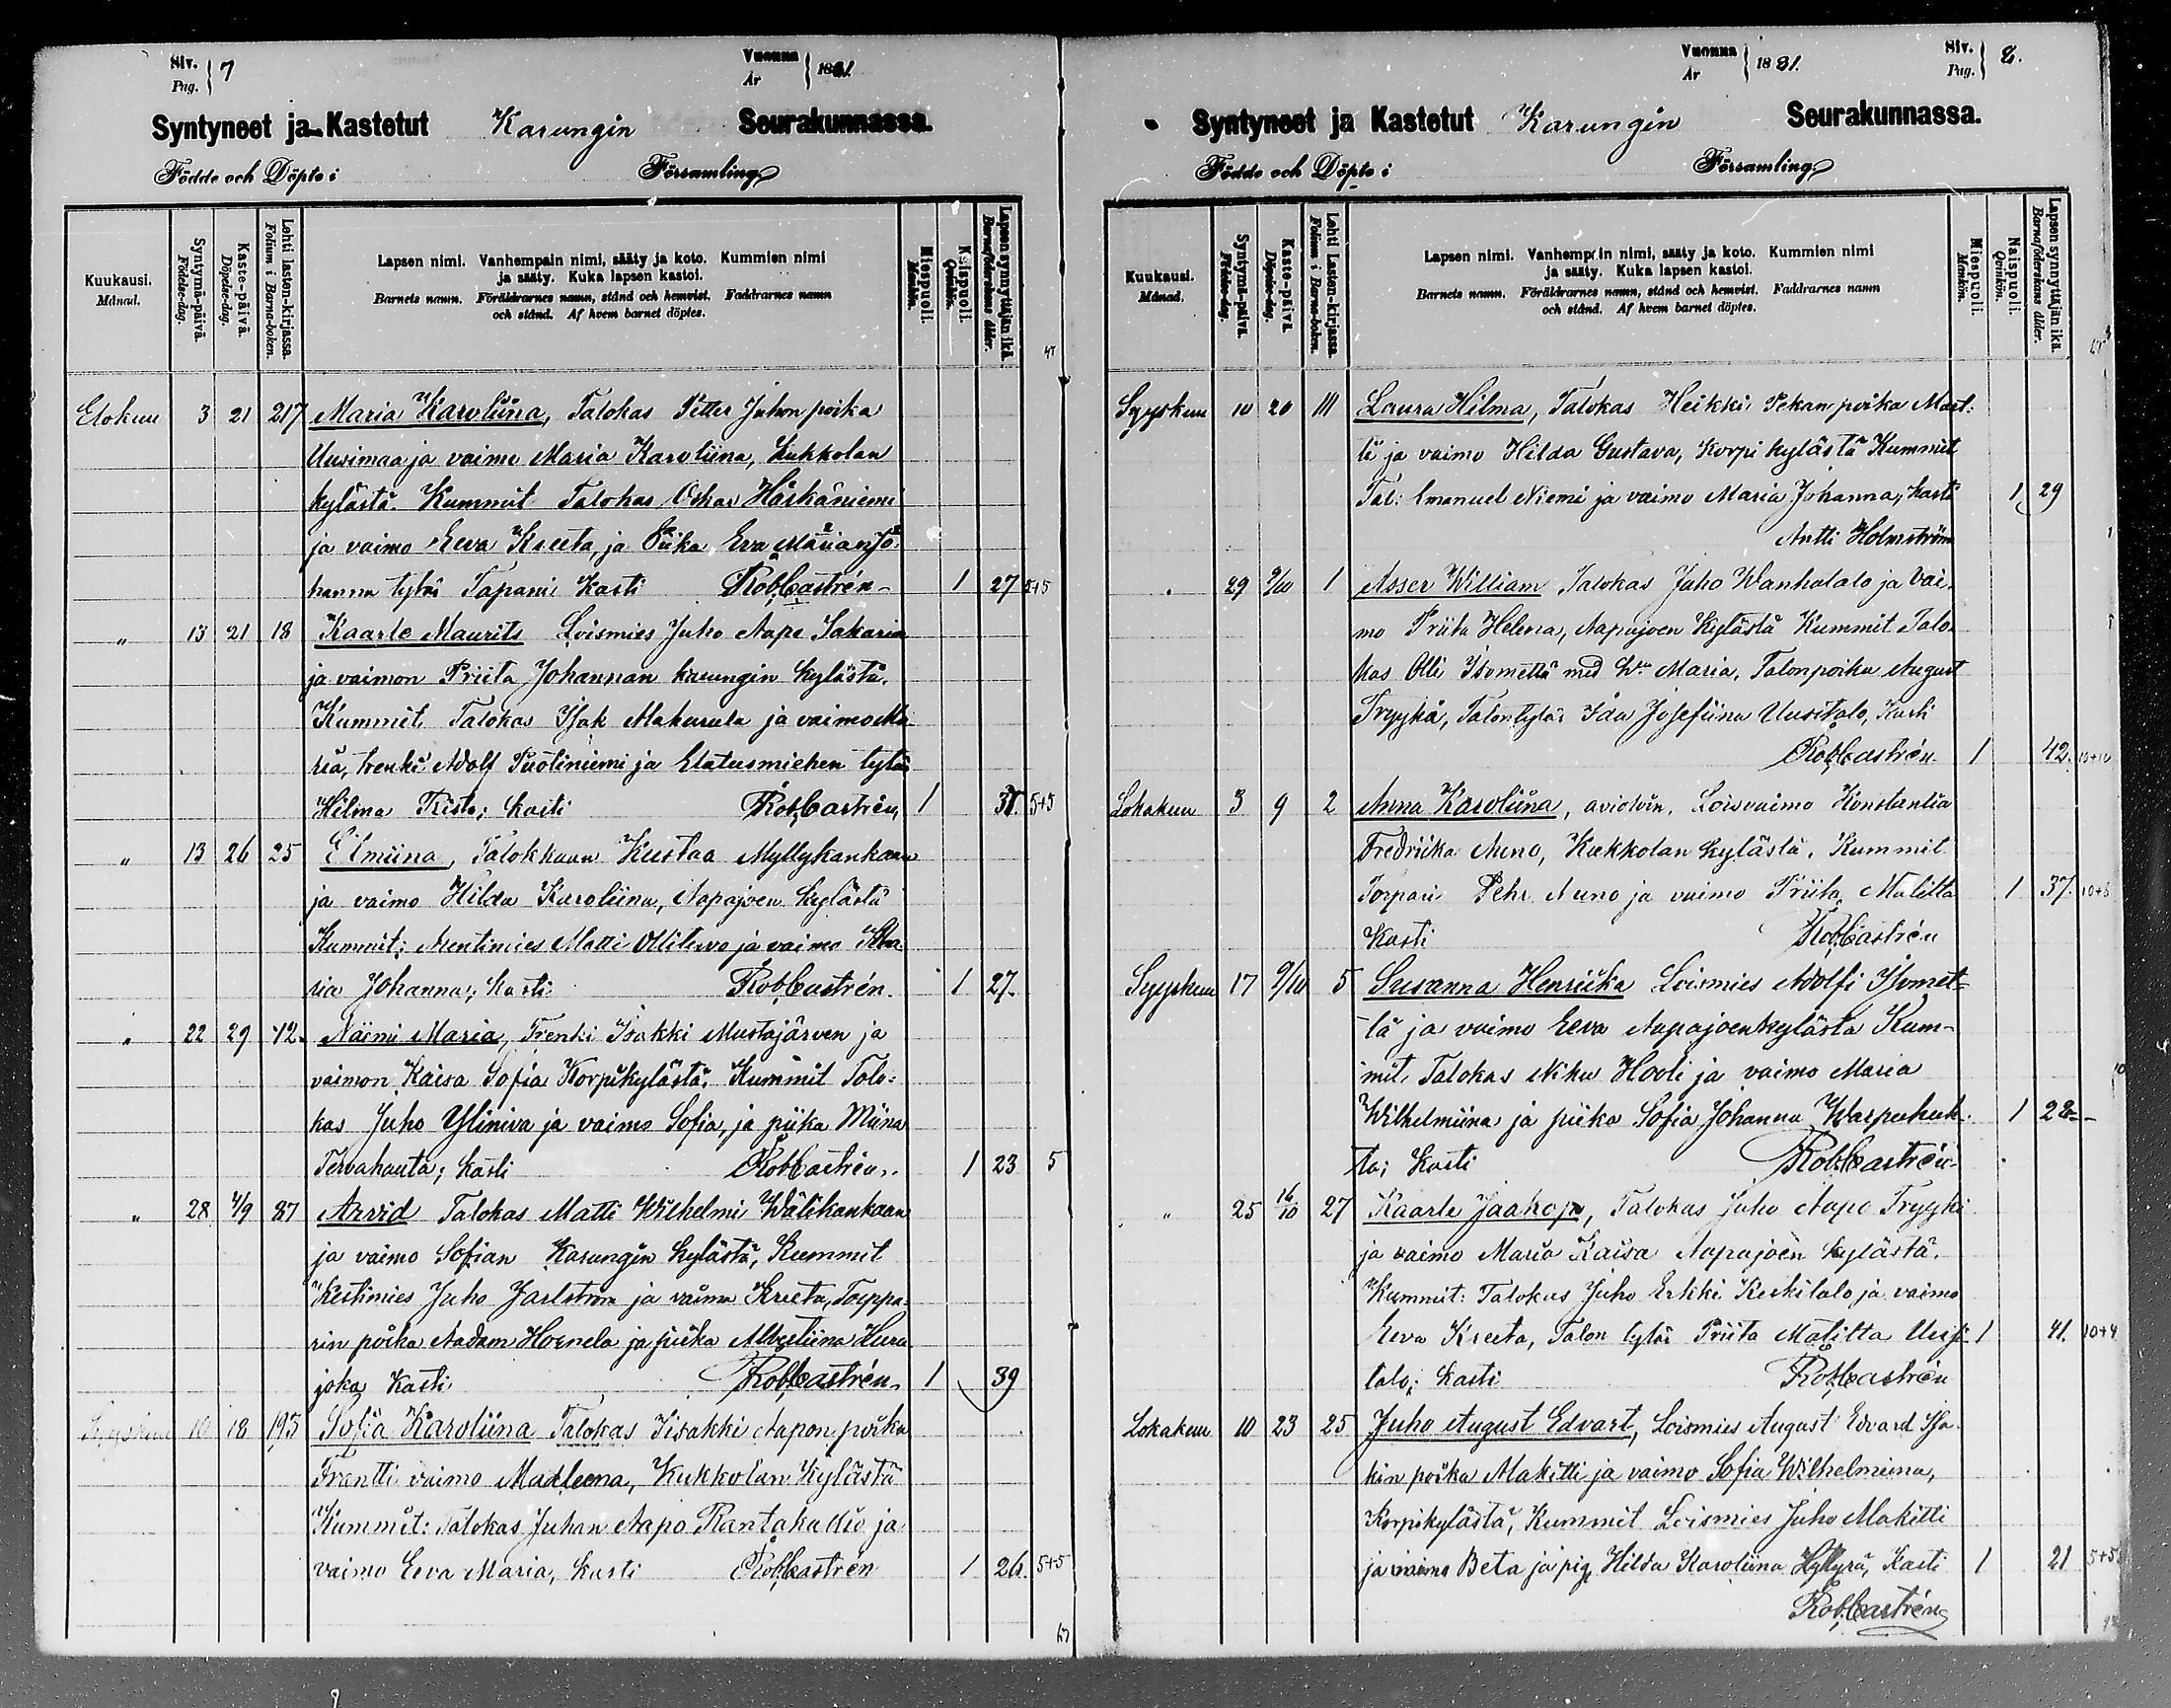 Siv. Pag. } 7
Vuonna År } 1881.
Syntyneet ja Kastetut Karungin Seurakunnassa.
Födde och Döpte i Församling
Kuukausi. Månad.
Syntymä-päivä. Födelse-dag.
Kaste-päivä. Döpelse-dag.
Lehti lasten-kirjassa. Folium i Barna-boken.
Lapsen nimi. Vanhempain nimi, sääty ja koto. Kummien nimi
ja sääty. Kuka lapsen kastoi.
Barnets namn. Föräldrarnes namn, stånd och hemvist. Faddrarnes namn
och stånd. Af hvem barnet döptes.
Miespuoli. Mankön.
Naispuoli. Qvinkön.
Lapsen synnyttäjän ikä. Barnaföderskans ålder.
Elokuu 3 21 217 Maria Karoliina, Talokas Petter Juhon poika
Uusimaa ja vaimo Maria Karoliina, Kukkolan
kylästä. Kummit Talokas Oskar Härkäniemi
ja vaimo Eeva Kreeta, ja Piika Eva Maria Jo-
hanna tytär Tapani Kasti Rob. Castrén 1 27 5+5
" 13 21 18 Kaarle Maurits Loismies Juho Aape Sakarin
ja vaimon Priita Johannan karungin kylästä.
Kummit Talokas Isak Makurula ja vaimo Ma-
ria, trenki Adolf Puotiniemi ja Elatusmiehen tytär
Hilma Risto; kasti Rob. Castrén, 1 31. 5+5
" 13 26 25 Elmiina, Talokkaan Kustaa Myllykankaan
ja vaimo Hilda Karoliina, Aapajoen kylästä
Kummit: Matti ja vaimo Ma-
ria Johanna; kasti Rob. Castrén. 1 27.
" 22 29 42. Naimi Maria, Trenki Isakki Mustajärven ja
vaimon Kaisa Sofia Korpikylästä. Kummit Talo-
kas Juho Yliniva ja vaimo Sofia, ja piika Miina
Tervahauta; kasti Rob. Castrén. 1 23 5
" 28 4/9 87 Arvid Talokas Matti Wilhelmi Wälikankaan
ja vaimo Sofian Karungin kylästä, Kummit
Kestimies Juho Jarlström ja vaimo Kreeta, Torppa-
rin poika Aadam Hornela ja piika Albertiina
joka Kasti Rob. Castrén. 1 39
Syyskuu 10 18 195 Sofia Karoliina Talokas Iisakki Aapon poika
Frantti vaimo Madleena, Kukkolan Kylästä
Kummit: Talokas Juhan Aapo Rantakallio ja
vaimo Eeva Maria, kasti Rob. Castrén 1 26. 5+5
Vuonna År } 1881.
Siv. Pag. } 8.
Syntyneet ja Kastetut Karungin Seurakunnassa.
Födde och Döpte i Församling
Kuukausi. Månad.
Syntymä-päivä. Födelse-dag.
Kaste-päivä. Döpelse-dag.
Lehti lasten-kirjassa. Folium i Barna-boken.
Lapsen nimi. Vanhempain nimi, sääty ja koto. Kummien nimi
ja sääty. Kuka lapsen kastoi.
Barnets namn. Föräldrarnes namn, stånd och hemvist. Faddrarnes namn
och stånd. Af hvem barnet döptes.
Miespuoli. Mankön.
Naispuoli. Qvinkön.
Lapsen synnyttäjän ikä. Barnaföderskans ålder.
Syyskuu 10 20 111 Laura Hilma, Talokas Heikki Pekan poika Mart-
ti ja vaimo Hilda Gustava, Korpikylästä Kummit
Tal: Emanuel Niemi ja vaimo Maria Johanna, kasti 1 29
Antti Holmström
" 29 9/10 1 Asser William Talokas Juho Wanhatalo ja vai-
mo Priita Helena, Aapajoen Kylästä Kummit Talo-
kas Olli Isometsä med h:u Maria, Talonpoika August
Fryykä, Talontytär Ida Josefiina Uusitalo, Kasti
Rob. Castrén. 1 42. 10+10
Lokakuu 3 9 2 Anna Karoliina, avioton, Loisvaimo Konstantia
Fredriika Auno, Kukkolan kylästä. Kummit
Torpari Pehr Auno ja vaimo Priita Malitta 1 37. 10+6
Kasti Rob. Castrén
Syyskuu 17 9/10 5 Susanna Henriika Loismies Adolfi Isomet-
tä ja vaimo Eeva Aapajoenkylästä Kum-
mit, Talokas Niku Hooli ja vaimo Maria
Wilhelmiina ja piika Sofia Johanna Warpuhuh- 1 28
ta; Kasti Rob. Castrén
" 25 16/10 27 Kaarle Jaakop, Talokas Juho Aape Fryyki
ja vaimo Maria Kaisa Aapajoen kylästä.
Kummit: Talokas Juho Erkki Keskitalo ja vaimo
Eeva Kreeta, Talon tytär Priita Matitta Uusi- 1 41. 10+4
talo; kasti Rob. Castrén
Lokakuu 10 23 25 Juho August Edvart, Loismies August Edvard Isa-
kin poika Makitti ja vaimo Sofia Wilhelmiina,
Korpikylästä, Kummit Loismies Juho Makitti
ja vaimo Beta ja pig. Hilda Karoliina Hyttyrä, Kasti 1 21 5+5
Rob. Castrén